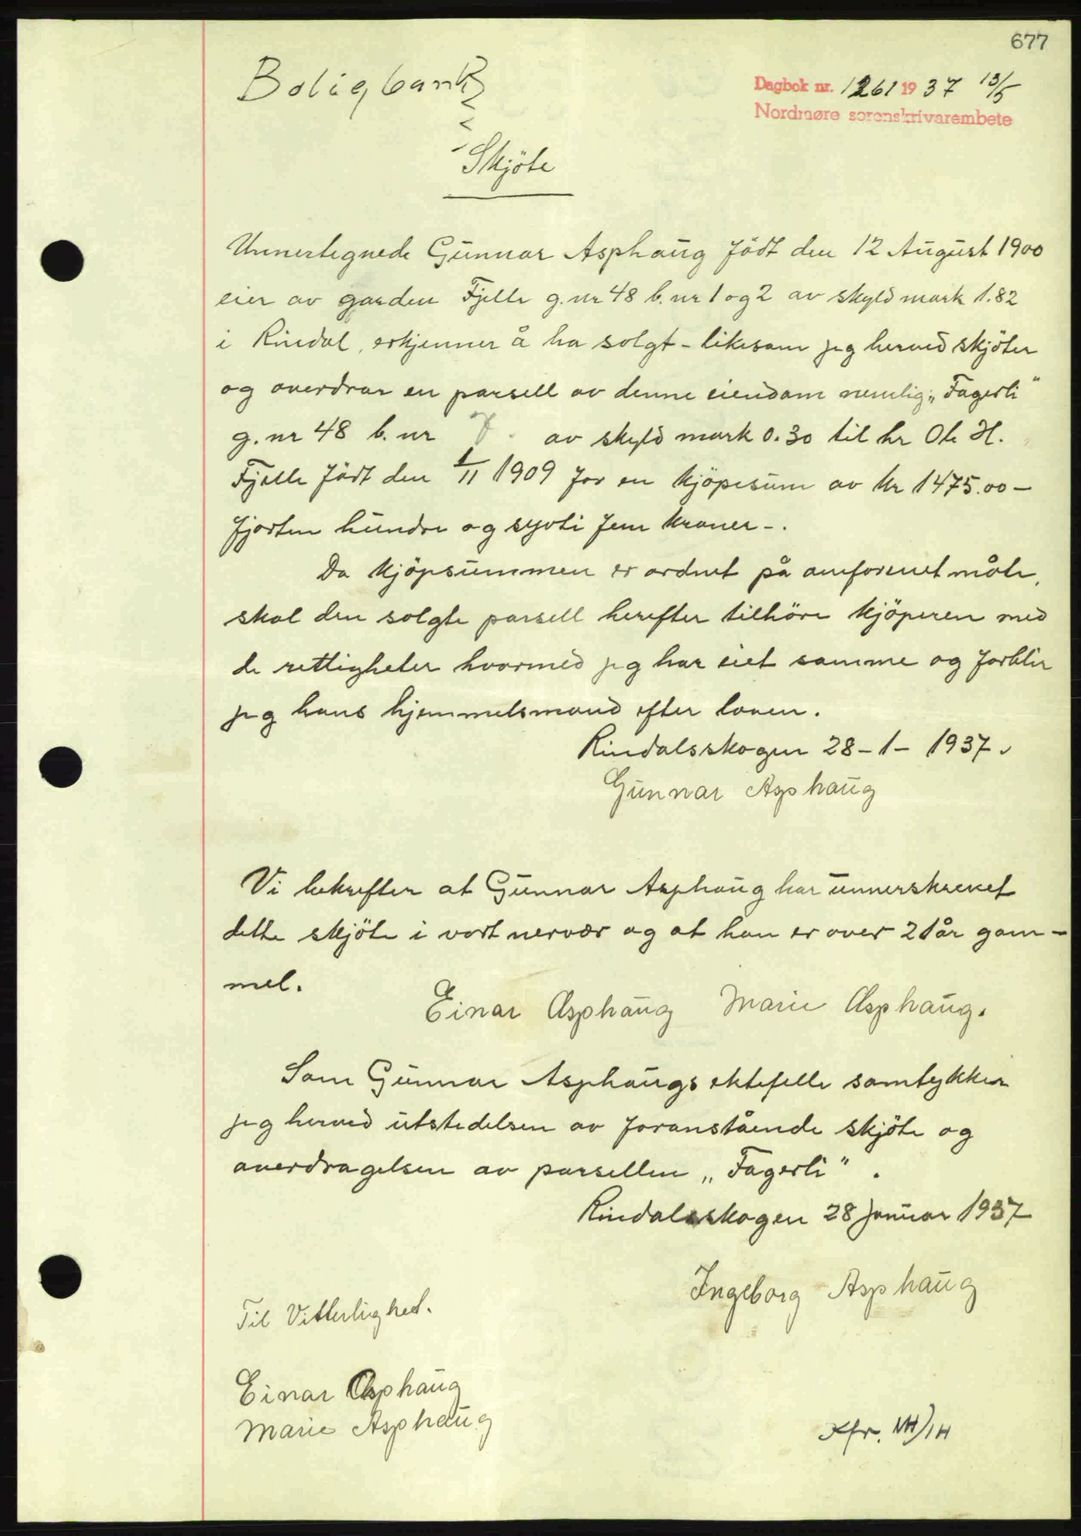 677
Boligbank
Dagbok nr. 1261 1937 13/5
Nordmøre sorenskrivarembete
Skjöte
Unnertegnede Gunnar Asphaug födt den 12 August 1900
eier av garden Fjelle g.nr 48 b.nr 1 og 2 av skyld mark 1.82
i Rindal, erkjenner å ha solgt - likesom jeg herved skjöter
og overdrar en parsell av denne eiendom nemlig „Fagerli"
g.nr 48 b.nr 7. av skyld mark 0.30 til hr Ole H.
Fjelle födt den 1/11 1909 for en kjöpesum av kr 1475.00 -
fjorten hundre og sytti fem kroner -.
Da kjöpsummen er ordnet på omforenet måte,
skal den solgte parsell herefter tilhöre kjöperen med
de rettigheter hvormed jeg har eiet samme og forblir
jeg hans hjemmelsmand efter loven.
Rindalsskogen 28-1-1937.
Gunnar Asphaug
Vi bekrefter at Gunnar Asphaug har unnerskrevet
dette skjöte i vort nervær og at han er over 21 år gam-
mel.
Einar Asphaug Marie Asphaug.
Som Gunnar Asphaugs ektefelle samtykker
jeg herved utstedelsen av foranstående skjöte og
overdragelsen av parsellen „Fagerli".
Rindalsskogen 28 Januar 1937
Ingeborg Asphaug
Til Vitterlighed.
Einar Asphaug
Marie Asphaug